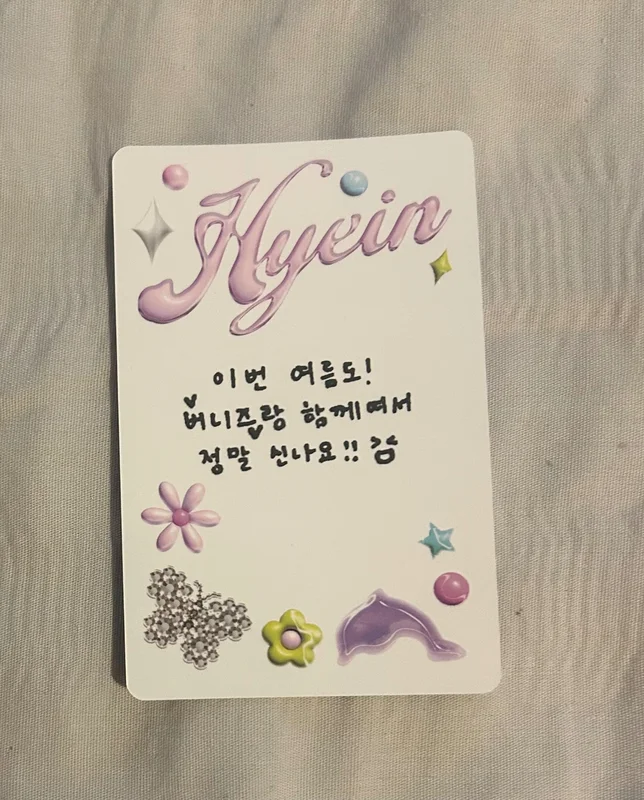 Hyein
이번 여름도!
버니즈랑 함께여서
정말 신나요!!